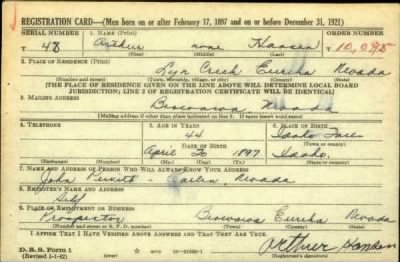 REGISTRATION CARD—(Men born on or after February 17, 1897 and on or before December 31, 1921)
SERIAL NUMBER 1. NAME (Print) ORDER NUMBER
T 48 Arthur none Hansen T 10,095
(First) (Middle) (Last)
2. PLACE OF RESIDENCE (Print)
Creek Eureka Nevada
(Number and street) (Town, township, village, or city) (County) (State)
[THE PLACE OF RESIDENCE GIVEN ON THE LINE ABOVE WILL DETERMINE LOCAL BOARD
JURISDICTION; LINE 2 OF REGISTRATION CERTIFICATE WILL BE IDENTICAL]
3. MAILING ADDRESS
Beowawe Nevada
[Mailing address if other than place indicated on line 2. If same insert word same]
4. TELEPHONE 5. AGE IN YEARS 6. PLACE OF BIRTH
44 Idaho
DATE OF BIRTH (Town or county)
April 1897 Idaho.
(Exchange) (Number) (Mo.) (Day) (Yr.) (State or country)
7. NAME AND ADDRESS OF PERSON WHO WILL ALWAYS KNOW YOUR ADDRESS
John Carlin, Nevada
8. EMPLOYER'S NAME AND ADDRESS
Self
9. PLACE OF EMPLOYMENT OR BUSINESS
Prospector Beowawe Eureka Nevada
(Number and street or R. F. D. number) (Town) (County) (State)
I AFFIRM THAT I HAVE VERIFIED ABOVE ANSWERS AND THAT THEY ARE TRUE.
D. S. S. Form 1
(Revised 5-1-42) (over)
Arthur Hansen
(Registrant's signature)